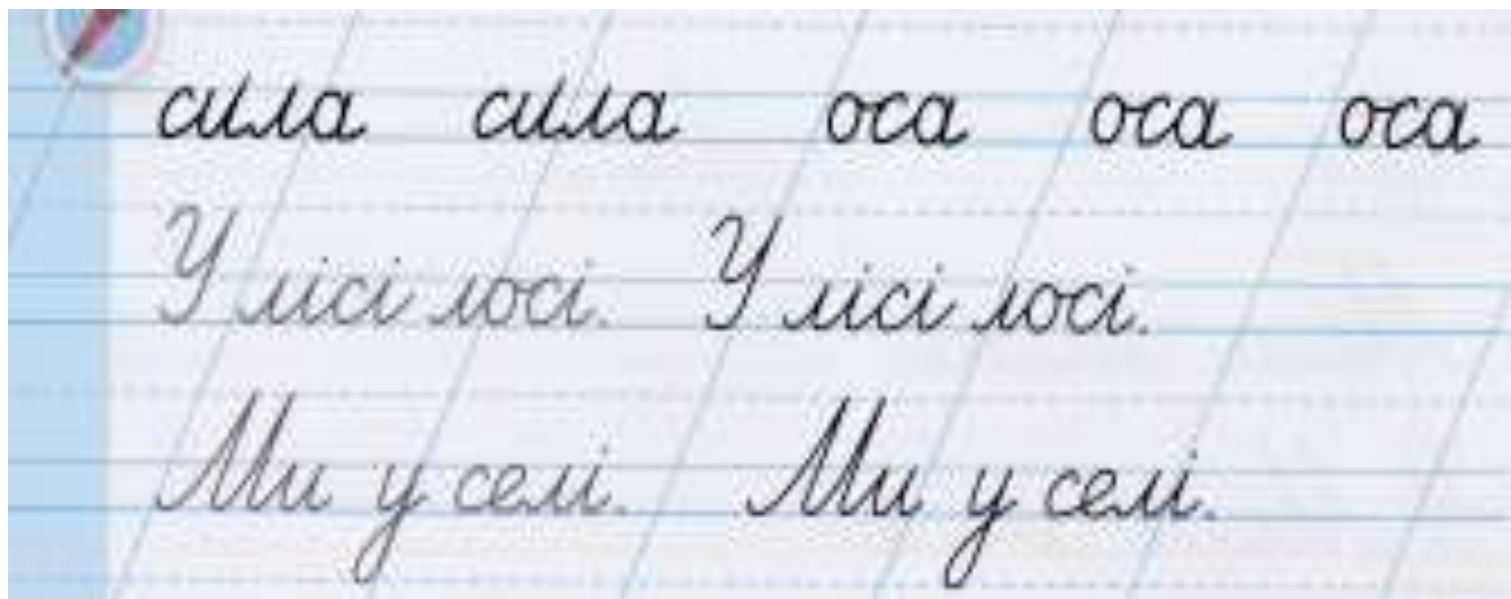 сила сила оса оса оса
У лісі лосі. У лісі лосі.
Ми у селі. Ми у селі.